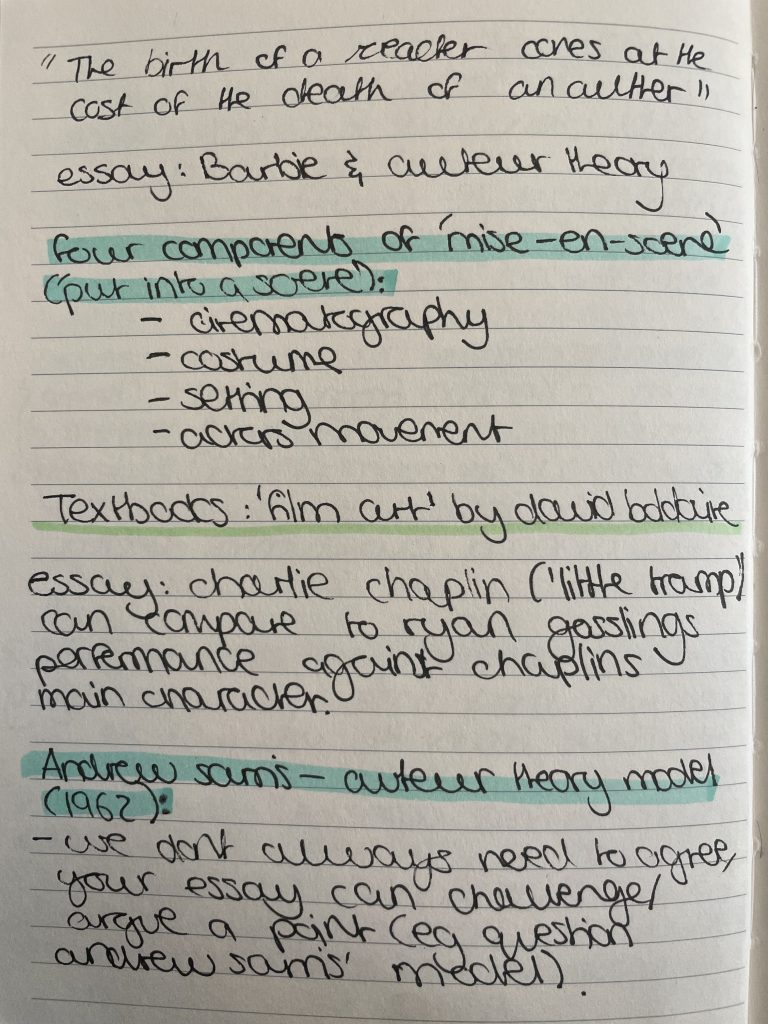 "The birth of a reader comes at the
cost of the death of an author"
essay: Barbie & auteur theory
four components of 'mise-en-scene'
(put into a scene):
- cinematography
- costume
- setting
- actors movement
Textbooks: 'film art' by david boldwire
essay: charlie chaplin ('little tramp')
can compare to ryan gosslings
performance against chaplins
main character.
Andrew sarris - auteur theory model
(1962):
- we dont always need to agree,
your essay can challenge/
argue a point (eg question
andrew sarris' model).